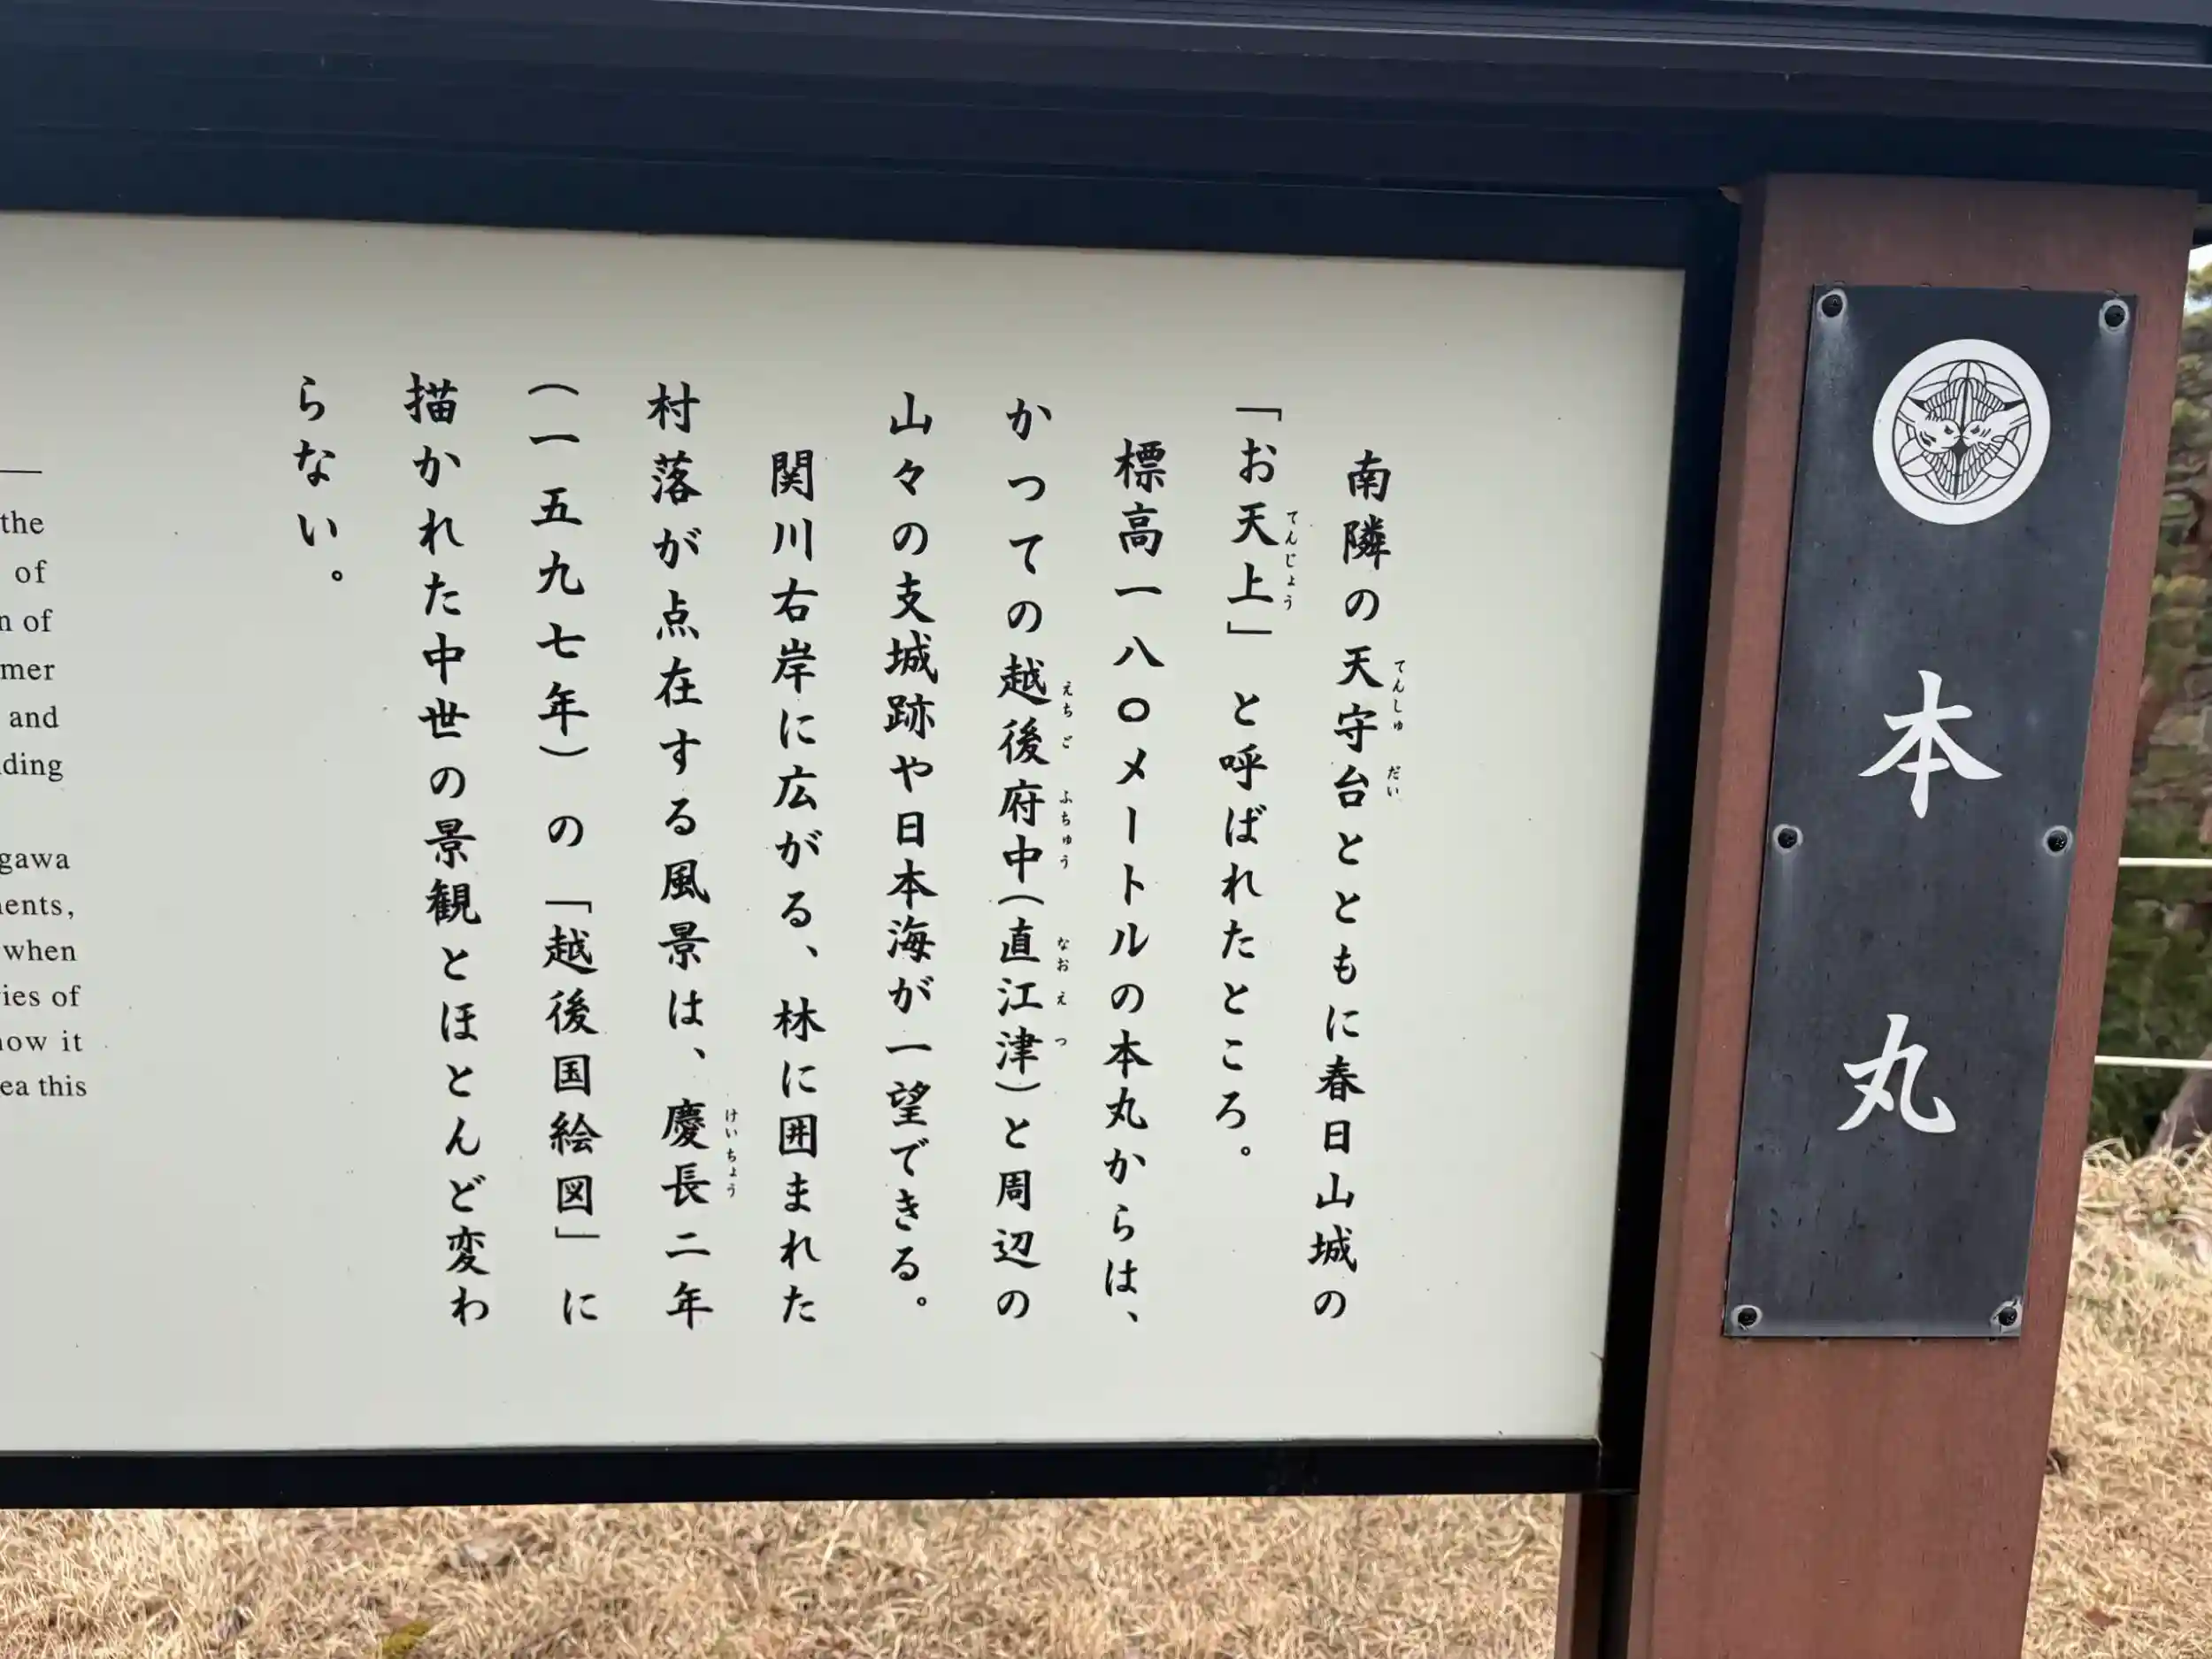 本丸
南隣の天守台とともに春日山城の
てんしゅだい
「お天上」と呼ばれたところ。
てんじょう
標高一八〇メートルの本丸からは、
かつての越後府中(直江津)と周辺の
えちごふちゅう なおえつ
山々の支城跡や日本海が一望できる。
関川右岸に広がる、林に囲まれた
村落が点在する風景は、慶長二年
けいちょう
(一五九七年)の「越後国絵図」に
描かれた中世の景観とほとんど変わ
らない。
the
of
of
and
when
of
it
this